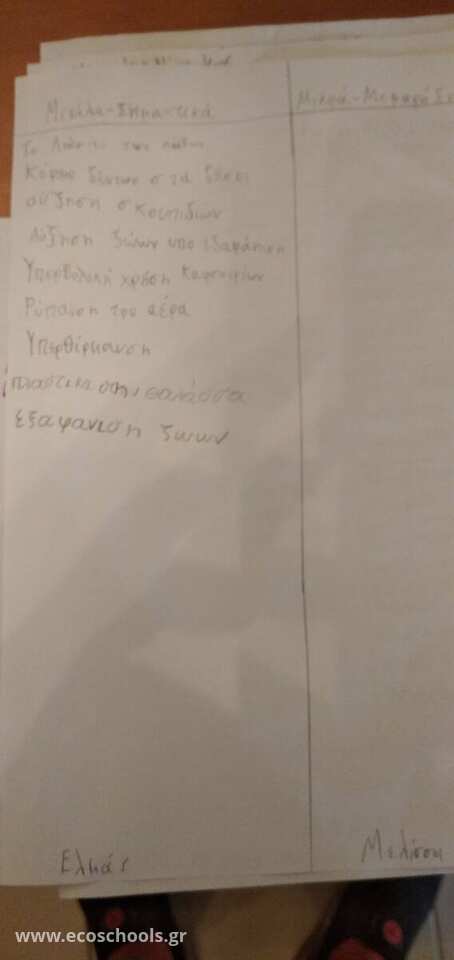 Μεγάλα-Σημαντικά
Μικρά-
Το λιώσιμο των πάγων
Κόψιμο δέντρων στα δάση
αύξηση σκουπιδιών
Αύξηση ζώων υπο εξαφάνιση
Υπερβολική χρήση καυσαερίων
Ρύπανση του αέρα
Υπερθέρμανση
πλαστικα στην θαλασσα
εξαφανιση ζωων
www.ecoschools.gr